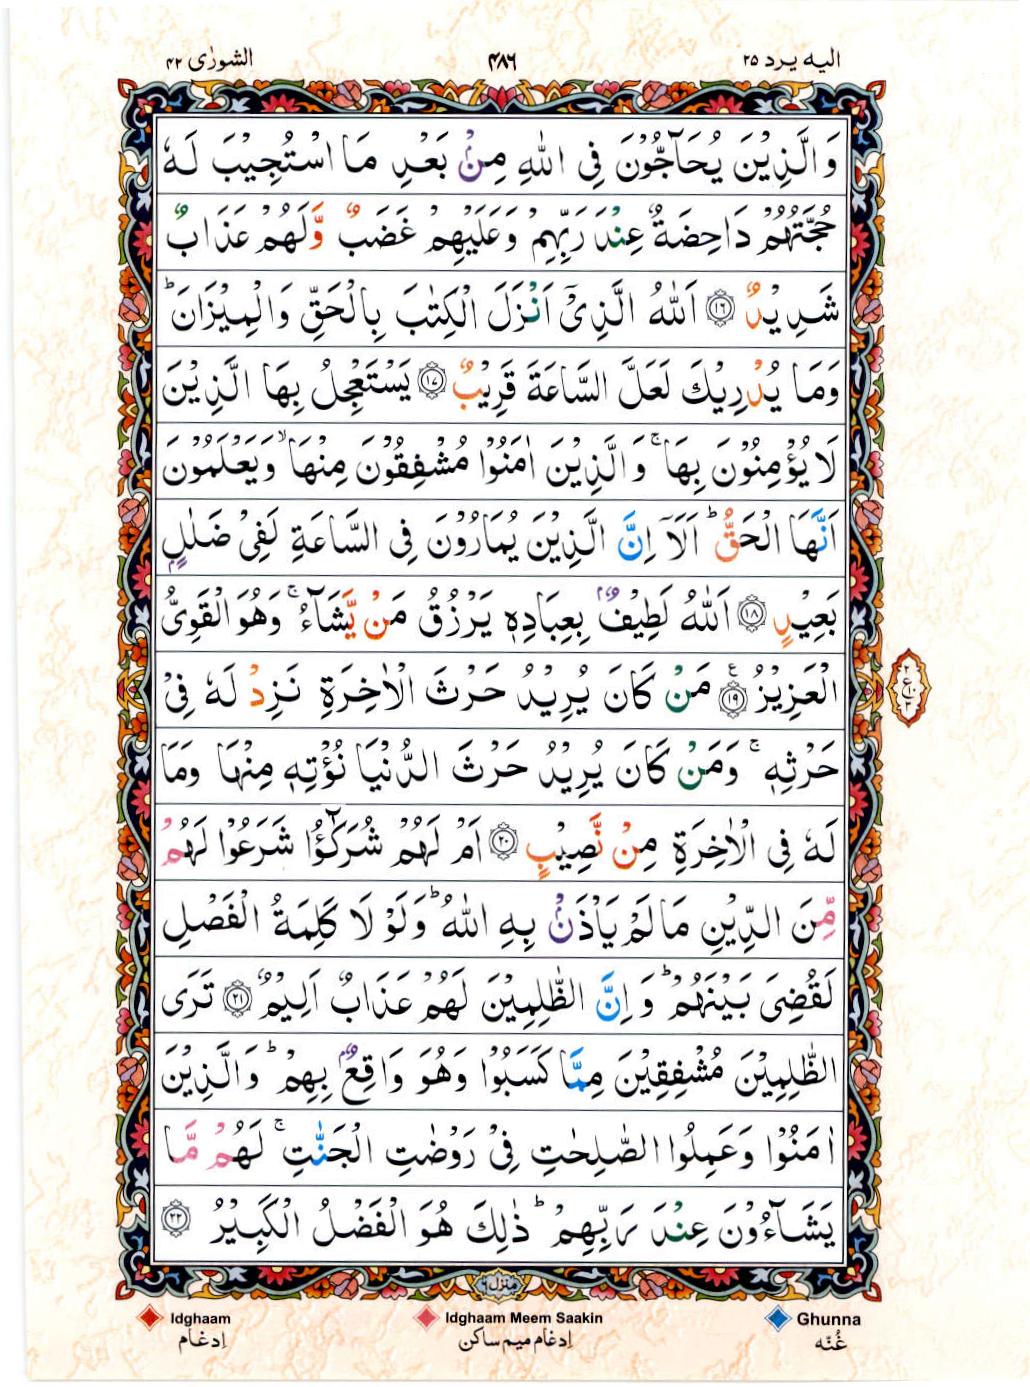 الشورٰى ٤٢
٤٨٦
اليه يرد ٢٥
وَالَّذِيْنَ يُحَآجُّوْنَ فِى اللّٰهِ مِنْۢ بَعْدِ مَا اسْتُجِيْبَ لَهٗ
حُجَّتُهُمْ دَاحِضَةٌ عِنْدَ رَبِّهِمْ وَعَلَيْهِمْ غَضَبٌ وَّلَهُمْ عَذَابٌ
شَدِيْدٌ ۝١٦ اَللّٰهُ الَّذِىْٓ اَنْزَلَ الْكِتٰبَ بِالْحَقِّ وَالْمِيْزَانَ ؕ
وَمَا يُدْرِيْكَ لَعَلَّ السَّاعَةَ قَرِيْبٌ ۝١٧ يَسْتَعْجِلُ بِهَا الَّذِيْنَ
لَا يُؤْمِنُوْنَ بِهَا ۚ وَالَّذِيْنَ اٰمَنُوْا مُشْفِقُوْنَ مِنْهَا ۙ وَيَعْلَمُوْنَ
اَنَّهَا الْحَقُّ ؕ اَلَآ اِنَّ الَّذِيْنَ يُمَارُوْنَ فِى السَّاعَةِ لَفِىْ ضَلٰلٍۢ
بَعِيْدٍ ۝١٨ اَللّٰهُ لَطِيْفٌۢ بِعِبَادِهٖ يَرْزُقُ مَنْ يَّشَآءُ ۚ وَهُوَ الْقَوِىُّ
الْعَزِيْزُ ۝١٩ ع مَنْ كَانَ يُرِيْدُ حَرْثَ الْاٰخِرَةِ نَزِدْ لَهٗ فِىْ
حَرْثِهٖ ۚ وَمَنْ كَانَ يُرِيْدُ حَرْثَ الدُّنْيَا نُؤْتِهٖ مِنْهَا وَمَا
لَهٗ فِى الْاٰخِرَةِ مِنْ نَّصِيْبٍ ۝٢٠ اَمْ لَهُمْ شُرَكٰٓؤُا شَرَعُوْا لَهُمْ
مِّنَ الدِّيْنِ مَا لَمْ يَاْذَنْۢ بِهِ اللّٰهُ ؕ وَلَوْلَا كَلِمَةُ الْفَصْلِ
لَقُضِىَ بَيْنَهُمْ ؕ وَاِنَّ الظّٰلِمِيْنَ لَهُمْ عَذَابٌ اَلِيْمٌ ۝٢١ تَرَى
الظّٰلِمِيْنَ مُشْفِقِيْنَ مِمَّا كَسَبُوْا وَهُوَ وَاقِعٌۢ بِهِمْ ؕ وَالَّذِيْنَ
اٰمَنُوْا وَعَمِلُوا الصّٰلِحٰتِ فِىْ رَوْضٰتِ الْجَنّٰتِ ۚ لَهُمْ مَّا
يَشَآءُوْنَ عِنْدَ رَبِّهِمْ ؕ ذٰلِكَ هُوَ الْفَضْلُ الْكَبِيْرُ ۝٢٢
منزل ٦
Idghaam
Idghaam Meem Saakin
Ghunna
اِدغام
اِدغام میم ساکن
غُنّه